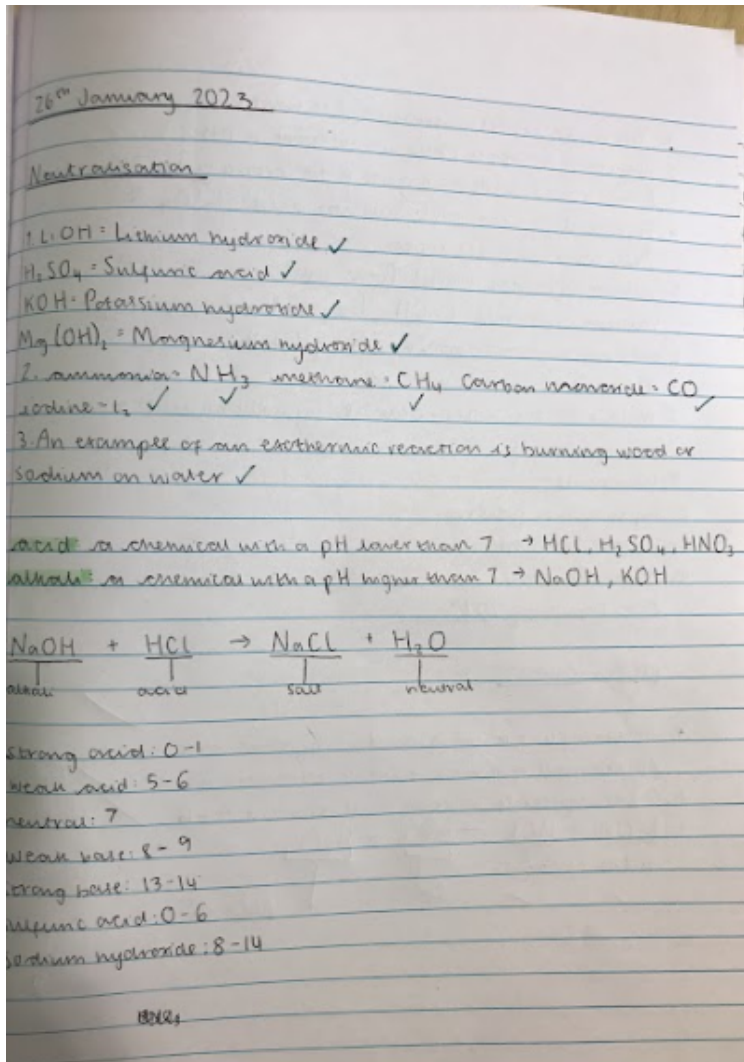 26th January 2023
Neutralisation
1. LiOH = Lithium hydroxide ✓
H₂SO₄ = Sulfuric acid ✓
KOH = Potassium hydroxide ✓
Mg(OH)₂ = Magnesium hydroxide ✓
2. ammonia = NH₃ methane = CH₄ Carbon monoxide = CO
iodine = I₂ ✓ ✓ ✓ ✓
3. An example of an exothermic reaction is burning wood or
sodium on water ✓
acid = a chemical with a pH lower than 7 → HCL, H₂SO₄, HNO₃
alkali = a chemical with a pH higher than 7 → NaOH, KOH
NaOH + HCl → NaCl + H₂O
alkali acid salt neutral
strong acid: 0-1
weak acid: 5-6
neutral: 7
weak base: 8-9
strong base: 13-14
sulfuric acid: 0-6
sodium hydroxide: 8-14